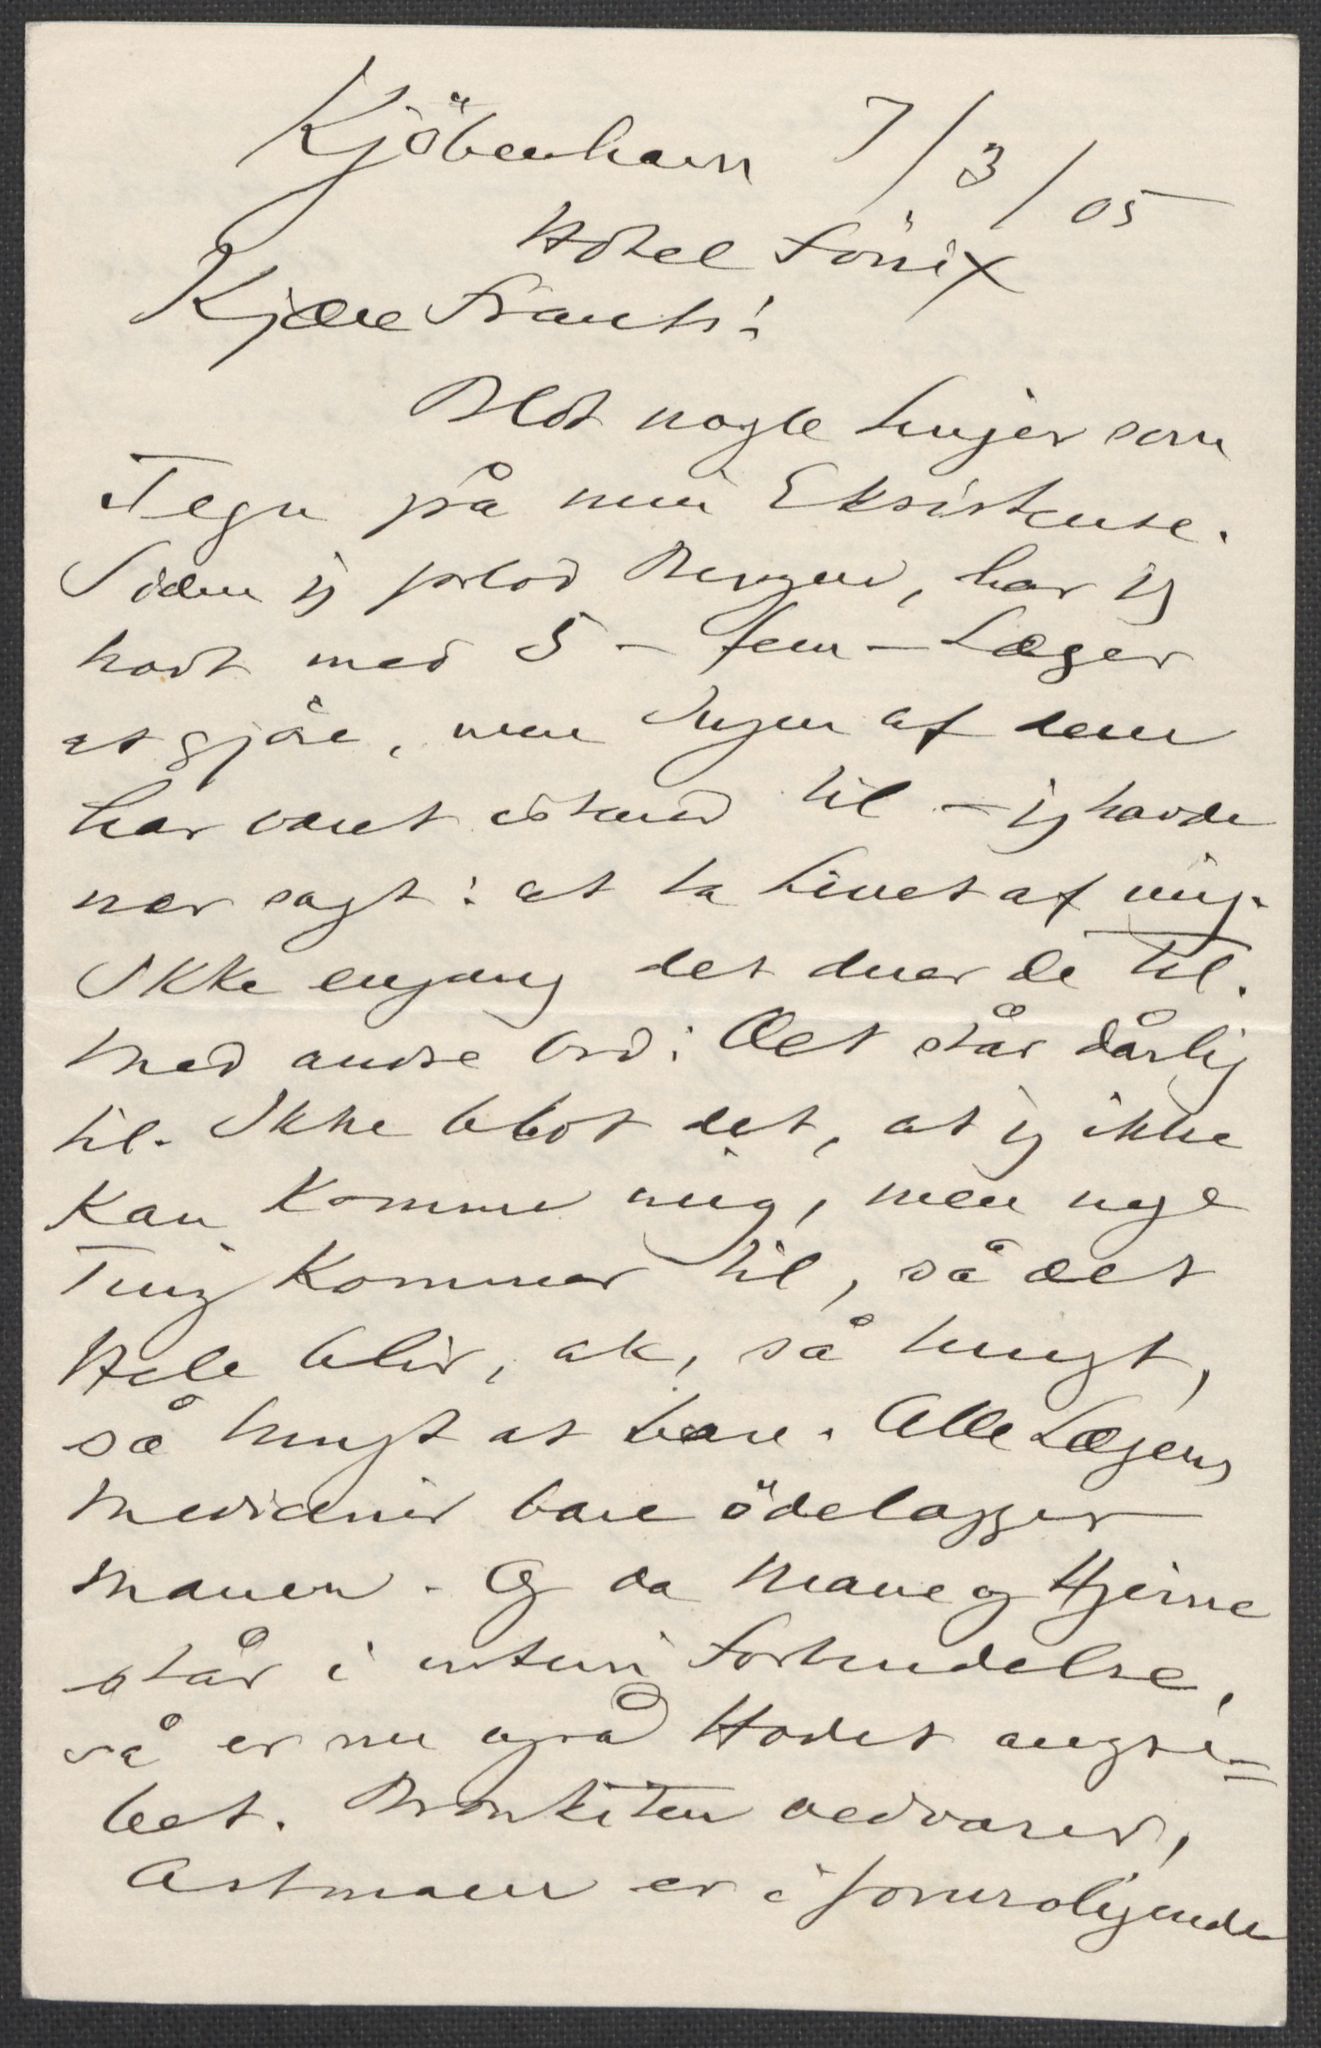 Kjöbenhavn 7/3/05
Hotel Fönix
Kjære Frants!
Blot nogle Linjer som
Tegn på min Eksistense.
Siden jeg forlod Bergen, har jeg
havt med 5 – fem – Læger
at gjöre, men Ingen af dem
har været istand til – jeg havde
nær sagt: at ta Livet af mig.
Ikke engang det duer de til.
Med andre Ord: Det står dårlig
til. Ikke blot det, at jeg ikke
kan komme mig, men nye
Ting kommer til, så det
Hele blir, ak, så tungt,
så tungt at bære. Alle Lægens
Medicinér bare ödelægger
Maven. Og da Mave og Hjerne
står i intim Forbindelse,
så er nu også Hodet angre-
bet. Bronkiten vedvarer,
Astmaen er i foruroligende